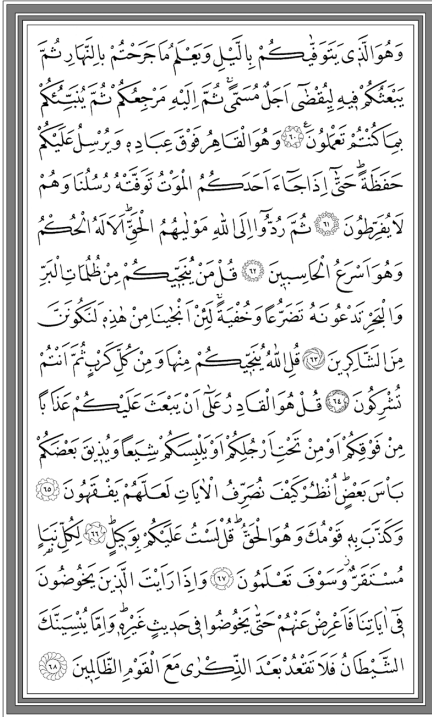 وَهُوَ الَّذ۪ي يَتَوَفّٰيكُمْ بِالَّيْلِ وَيَعْلَمُ مَا جَرَحْتُمْ بِالنَّهَارِ ثُمَّ
يَبْعَثُكُمْ ف۪يهِ لِيُقْضٰٓى اَجَلٌ مُسَمًّىۚ ثُمَّ اِلَيْهِ مَرْجِعُكُمْ ثُمَّ يُنَبِّئُكُمْ
بِمَا كُنْتُمْ تَعْمَلُونَ۟ ﴿٦٠﴾ وَهُوَ الْقَاهِرُ فَوْقَ عِبَادِه۪ وَيُرْسِلُ عَلَيْكُمْ
حَفَظَةًۜ حَتّٰٓى اِذَا جَٓاءَ اَحَدَكُمُ الْمَوْتُ تَوَفَّتْهُ رُسُلُنَا وَهُمْ
لَا يُفَرِّطُونَ ﴿٦١﴾ ثُمَّ رُدُّٓوا اِلَى اللّٰهِ مَوْلٰيهُمُ الْحَقِّۜ اَلَا لَهُ الْحُكْمُ
وَهُوَ اَسْرَعُ الْحَاسِب۪ينَ ﴿٦٢﴾ قُلْ مَنْ يُنَجّ۪يكُمْ مِنْ ظُلُمَاتِ الْبَرِّ
وَالْبَحْرِ تَدْعُونَهُ تَضَرُّعًا وَخُفْيَةًۚ لَئِنْ اَنْجٰينَا مِنْ هٰذِه۪ لَنَكُونَنَّ
مِنَ الشَّاكِر۪ينَ ﴿٦٣﴾ قُلِ اللّٰهُ يُنَجّ۪يكُمْ مِنْهَا وَمِنْ كُلِّ كَرْبٍ ثُمَّ اَنْتُمْ
تُشْرِكُونَ ﴿٦٤﴾ قُلْ هُوَ الْقَادِرُ عَلٰٓى اَنْ يَبْعَثَ عَلَيْكُمْ عَذَابًا
مِنْ فَوْقِكُمْ اَوْ مِنْ تَحْتِ اَرْجُلِكُمْ اَوْ يَلْبِسَكُمْ شِيَعًا وَيُذ۪يقَ بَعْضَكُمْ
بَاْسَ بَعْضٍۜ اُنْظُرْ كَيْفَ نُصَرِّفُ الْاٰيَاتِ لَعَلَّهُمْ يَفْقَهُونَ ﴿٦٥﴾
وَكَذَّبَ بِه۪ قَوْمُكَ وَهُوَ الْحَقُّۜ قُلْ لَسْتُ عَلَيْكُمْ بِوَك۪يلٍۜ ﴿٦٦﴾ لِكُلِّ نَبَاٍ
مُسْتَقَرٌّۘ وَسَوْفَ تَعْلَمُونَ ﴿٦٧﴾ وَاِذَا رَاَيْتَ الَّذ۪ينَ يَخُوضُونَ
ف۪ٓي اٰيَاتِنَا فَاَعْرِضْ عَنْهُمْ حَتّٰى يَخُوضُوا ف۪ي حَد۪يثٍ غَيْرِه۪ۜ وَاِمَّا يُنْسِيَنَّكَ
الشَّيْطَانُ فَلَا تَقْعُدْ بَعْدَ الذِّكْرٰى مَعَ الْقَوْمِ الظَّالِم۪ينَ ﴿٦٨﴾